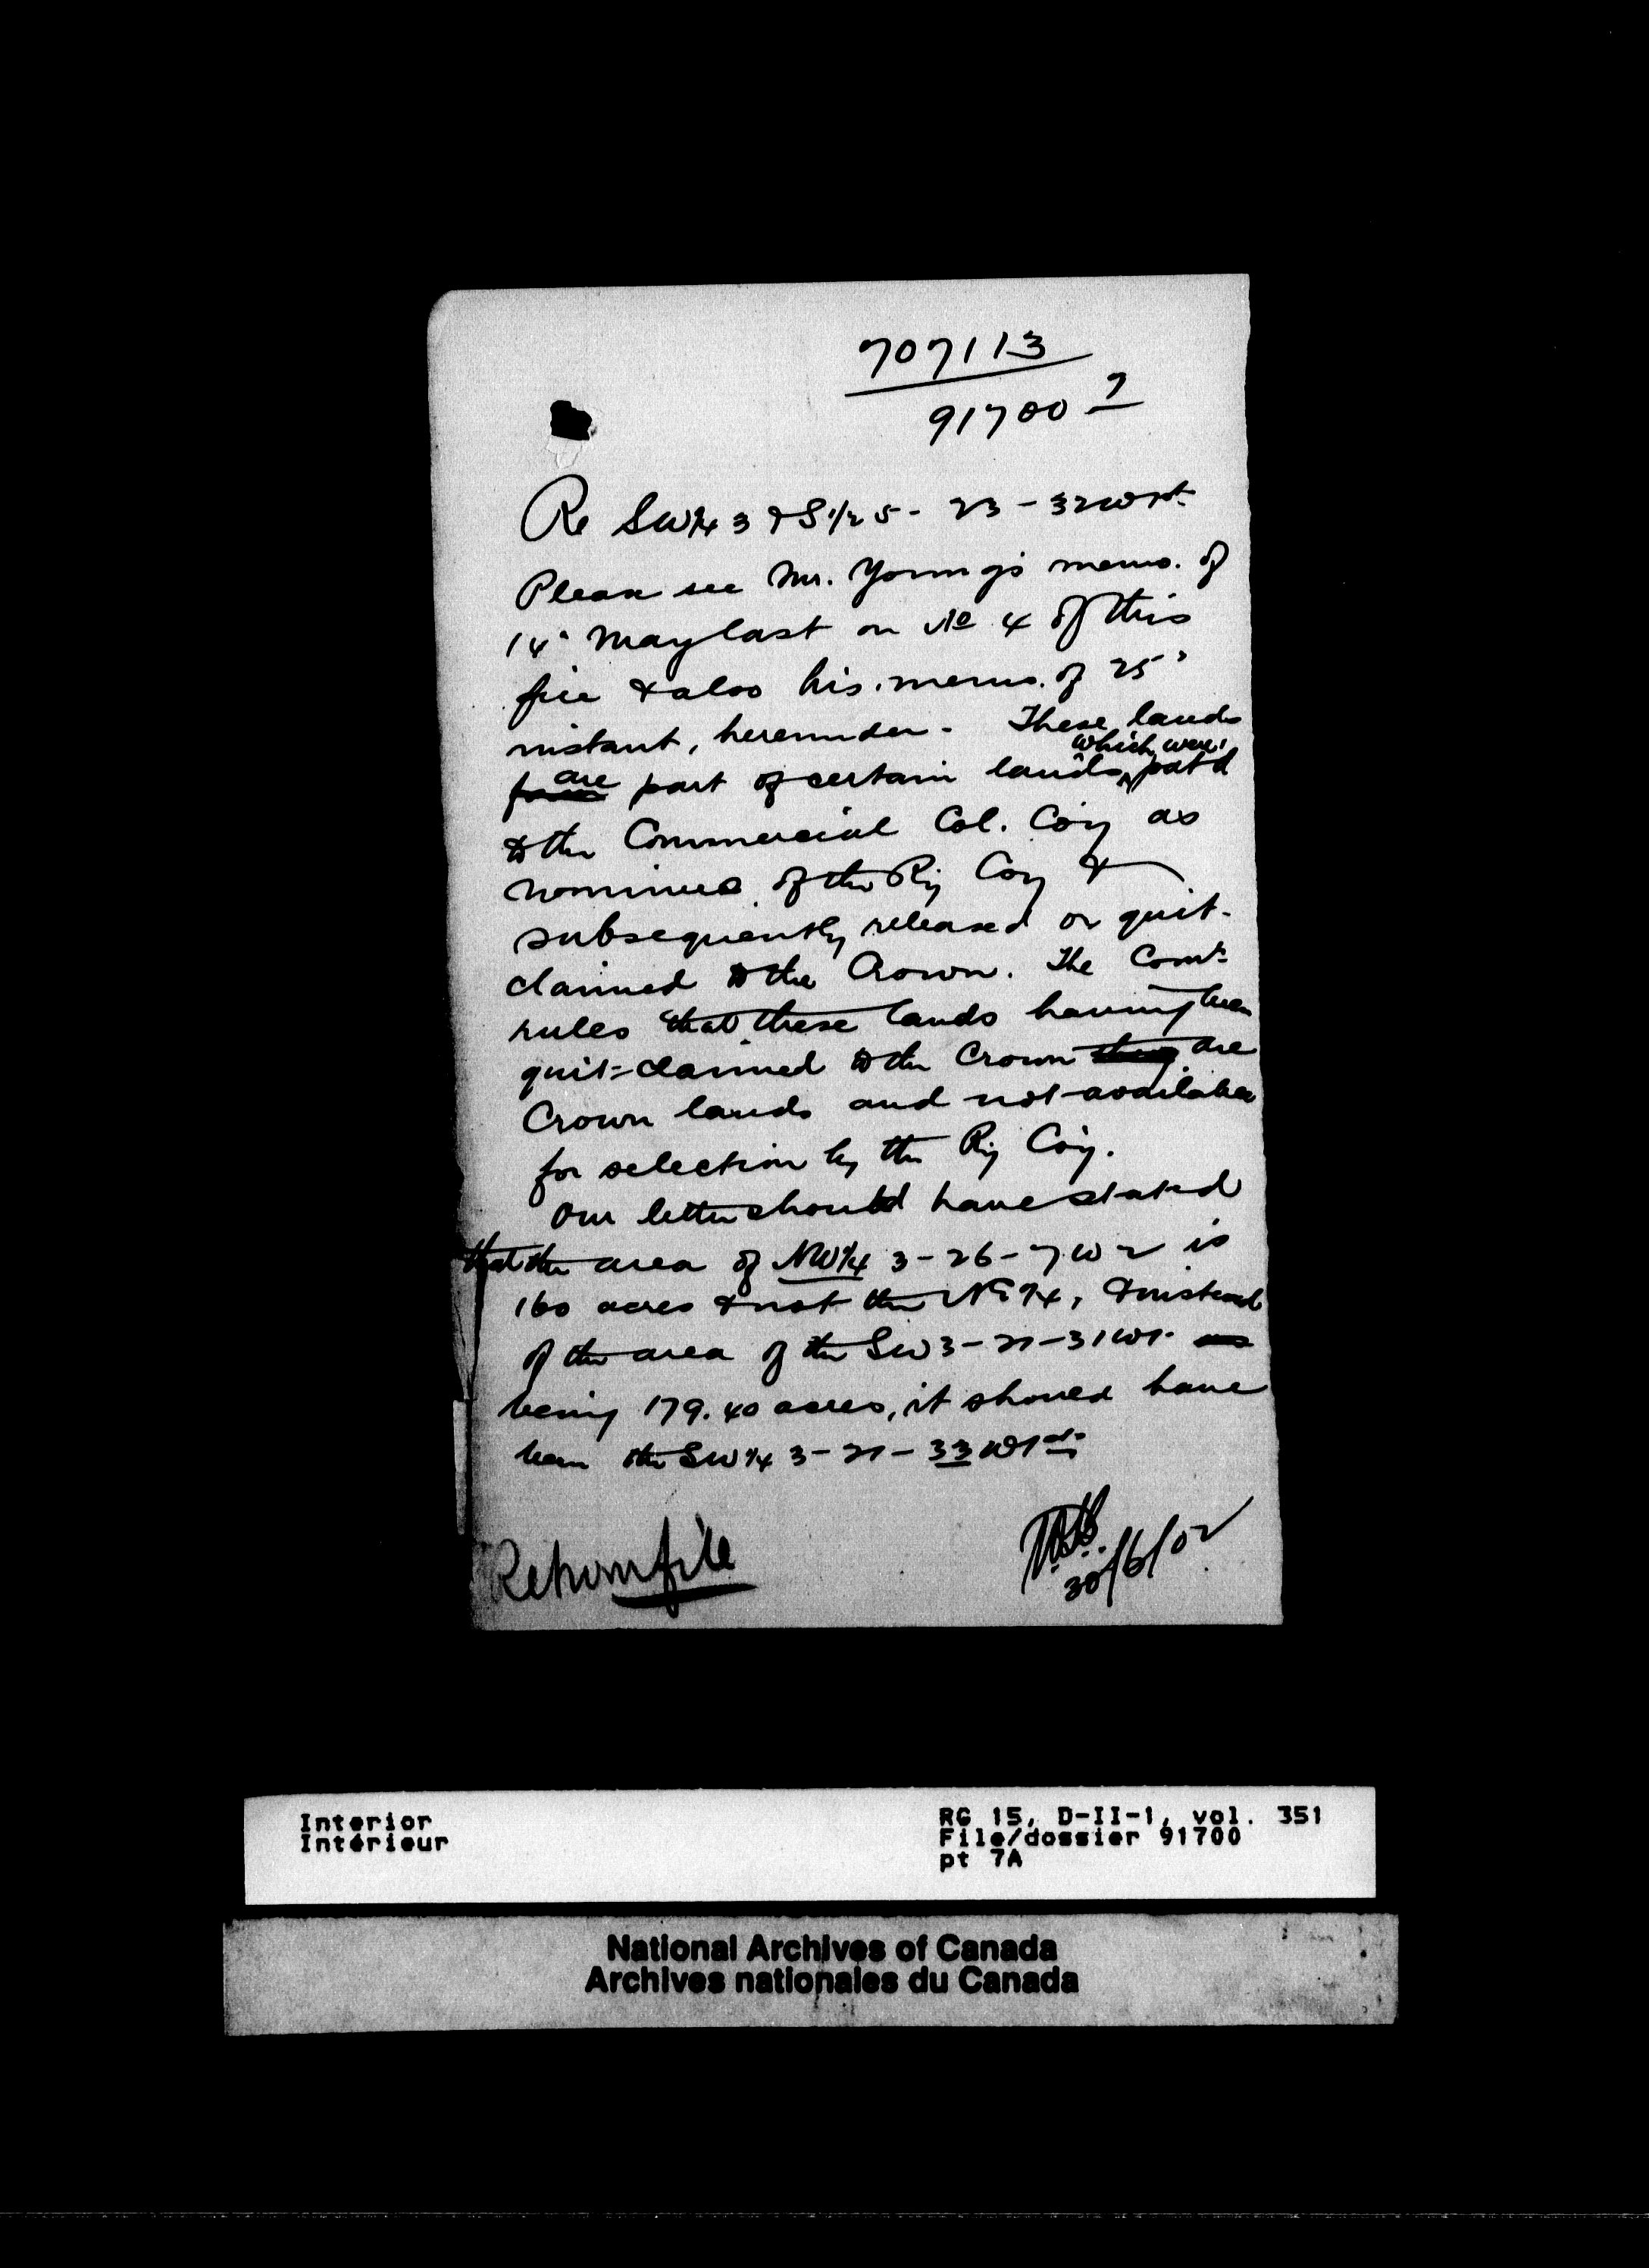 707113
91700 7
Re SW¼ 3 & S½ 5 - 23 - 32W1st
Please see Mr. Young's memo. of
14" May last on No 4 of this
file & also his memo. of 25"
instant, hereunder. These lands
are part of certain lands which were pat'd
to the Commercial Col. Coy as
nominee of the Ry Coy &
subsequently released or quit-
claimed to the Crown. The Comr.
rules that these lands having been
quit-claimed to the Crown are
Crown lands and not available
for selection by the Ry Coy.
Our letter should have stated
that the area of NW¼ 3-26-7W2 is
160 acres & not the NE¼, & instead
of the area of the SW 3-21-31W1.
being 179.40 acres, it should have
been the SW¼ 3-21-33W1st
Return file
30/6/02
Interior
Intérieur
RG 15, D-II-1, vol. 351
File/dossier 91700
pt 7A
National Archives of Canada
Archives nationales du Canada